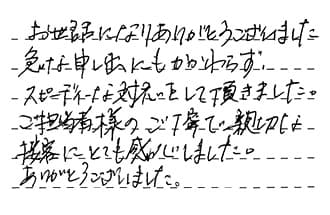 お世話になりありがとうございました
急な申し出にもかかわらず
スピーディーな対応をして頂きました。
ご担当者様のご丁寧で親切な
接客にとても感心しました。
ありがとうございました。